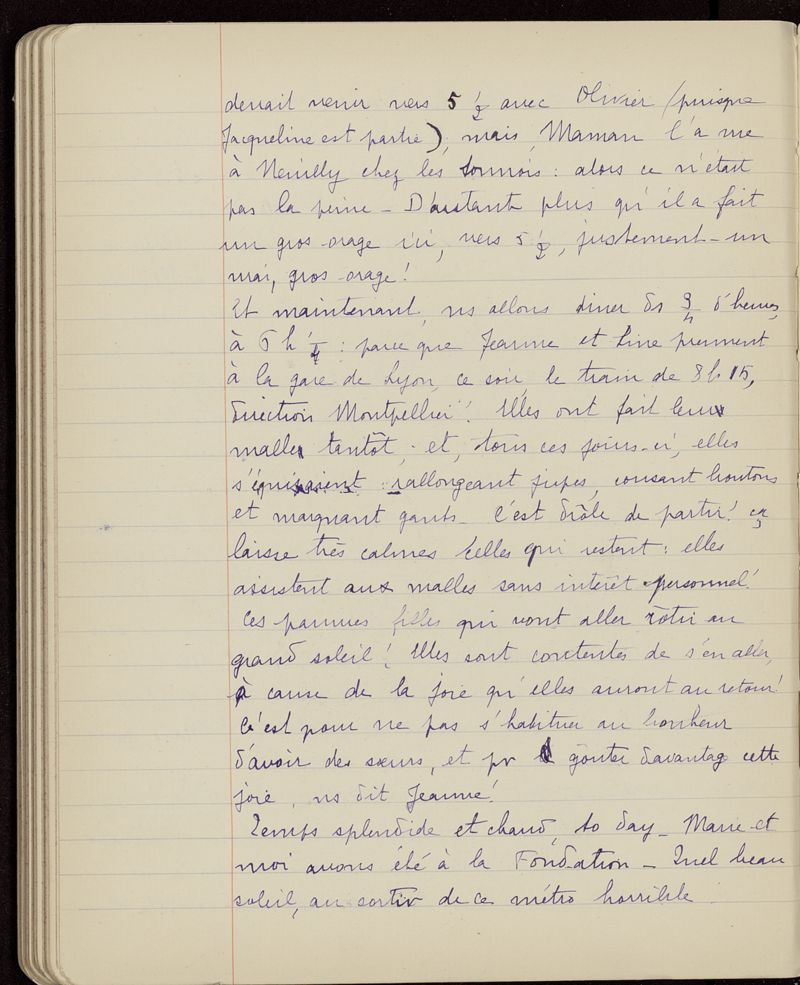 devait venir vers 5 1/2 avec Olivier (puisque
Jacqueline est partie), mais Maman l'a vue
à Neuilly chez les : alors ce n'était
pas la peine _ D'autant plus qu'il a fait
un gros orage ici, vers 5 1/2, justement _ un
vrai, gros orage!
Et maintenant, ns allons diner ds 3/4 d'heures,
à 6 h 1/4 : parce que Jeanne et Line prennent
à la gare de Lyon, ce soir, le train de 8 h 15,
direction Montpellier! Elles ont fait leurs
malles tantôt, et, tous ces jours-ci, elles
s'épuisaient rallongeant jupes, cousant boutons
et maignant gants _ C'est drôle de partir! ça
laisse très calmes celles qui restent : elles
assistent aux malles sans intérêt personnel!
Ces pauvres filles qui vont aller rôtir au
grand soleil! Elles sont contentes de s'en aller,
à cause de la joie qu'elles auront au retour!
C'est pour ne pas s'habituer au bonheur
d'avoir des sœurs, et pr goûter davantage cette
joie, ns dit Jeanne!
Temps splendide et chaud, to day _ Marie et
moi avons été à la Fondation _ Quel beau
soleil, au sortir de ce métro horrible